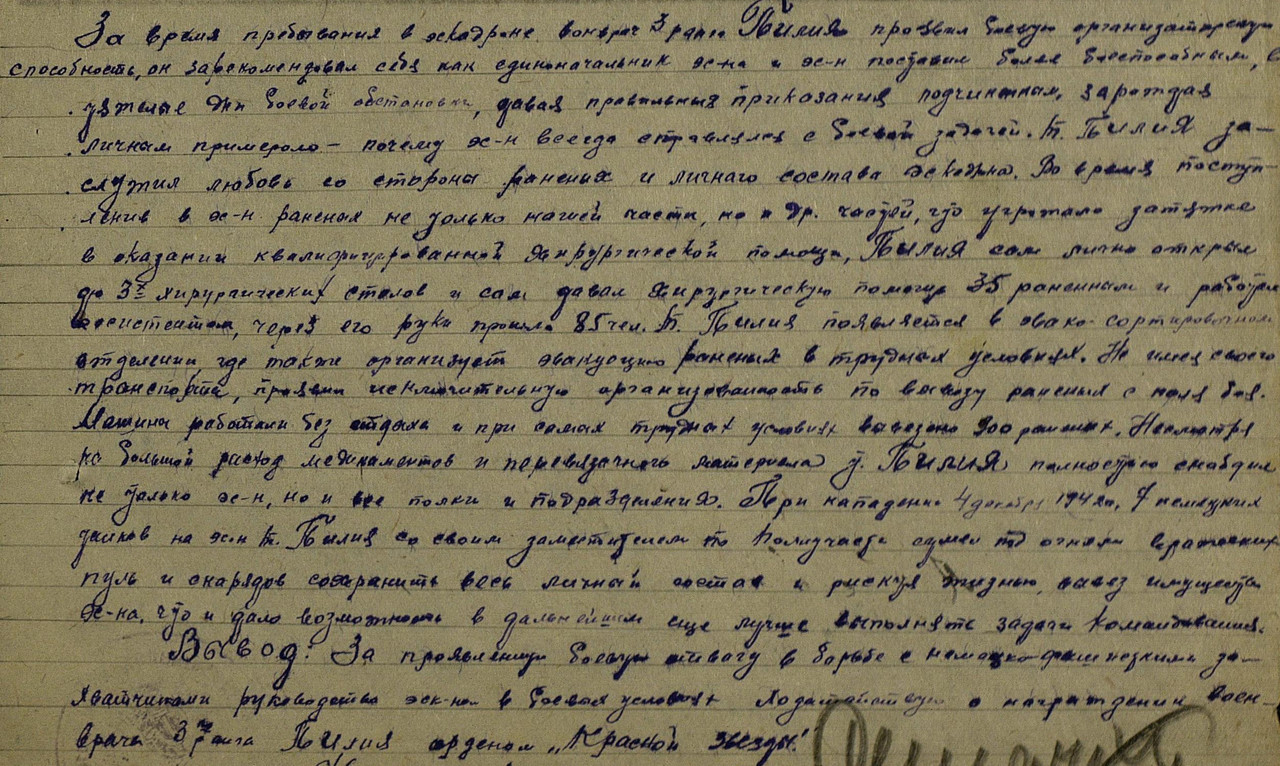 За время пребывания в эскадроне воен врач 3 ранга Пилия проявил боевую организаторскую
способность, он зарекомендовал себя как единоначальник эс-на и эс-н поставил более боеспособным, в
тяжелые дни боевой обстановки, давая правильные приказания подчиненным, зараждая
личным примером – почему эс-н всегда справлялся с боевой задачей. т. Пилия за-
служил любовь со стороны раненых и личнаго состава эскадрона. Во время поступ-
ления в эс-н раненых не только нашей части, но и др. частей, что угрожало затяжке
в оказании квалифицированной хирургической помощи, Пилия сам лично открыл
до 3х хирургических столов и сам давал хирургическую помощь 35 раненным и работал
ассистентом, через его руки прошло 85 чел. т. Пилия появляется в эвако-сортировочном
отделении где также организует эвакуацию раненых в трудных условиях. Не имея своего
транспорта, проявил исключительную организованность по вывозу раненых с поля боя.
Машины работали без отдыха и при самых трудных условиях вывезено 900 раненых. Несмотря
на большой расход медикаментов и перевязачного материала т. Пилия полностью снабдил
не только эс-н, но и все полки и подразделения. При нападении 4 декабря 1942г. 7 немецких
танков на эс-н т. Пилия со своим заместителем по политчасти сумел под огнем вражеских
пуль и снарядов сохранить весь личный состав и рискуя жизнью, вывез имущество
эс-на, что и дало возможность в дальнейшем еще лучше выполнять задачи командования.
Вывод: За проявленную боевую отвагу в борьбе с немецко-фашистскими за-
хватчиками руководство эск-на в боевых условиях ходатайствую о награждении воен-
врача 3го ранга Пилия орденом „Красной звезды."